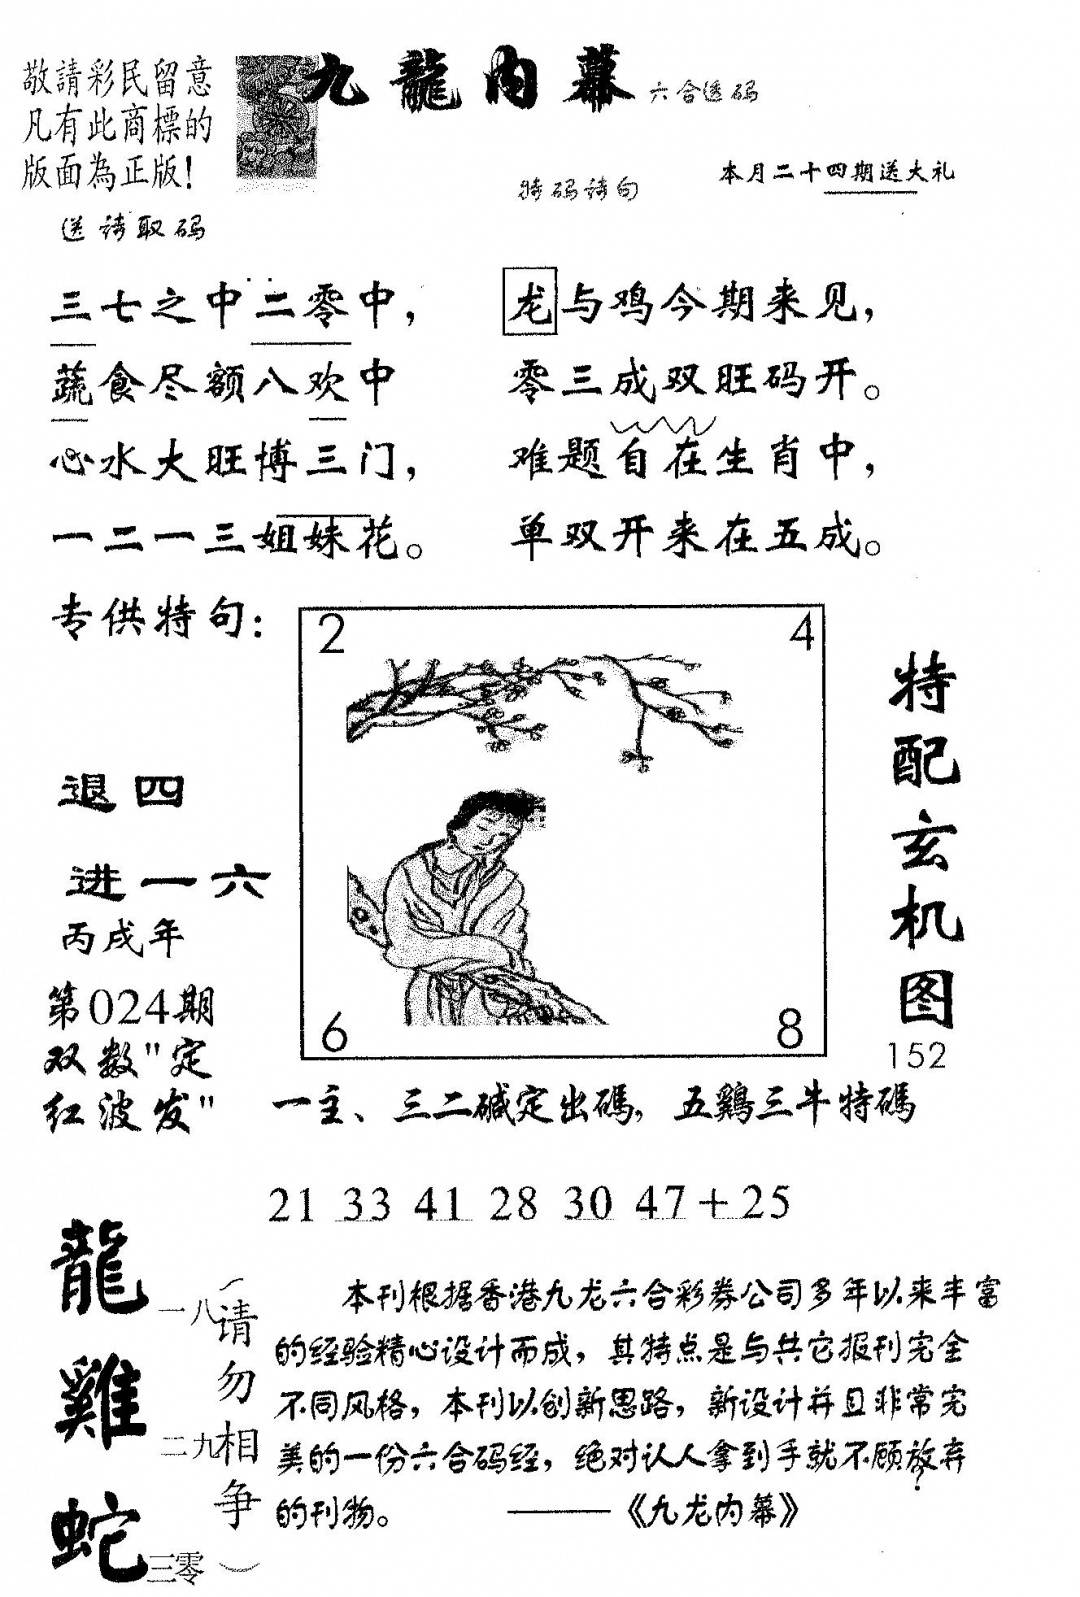 敬請彩民留意
凡有此商標的
版面為正版！
九龍内幕 六合透码
本月二十四期送大礼
特码诗句
送诗取码
三七之中二零中，
蔬食尽额八欢中
心水大旺博三门，
一二一三姐妹花。
龙与鸡今期来见，
零三成双旺码开。
难题自在生肖中，
单双开来在五成。
专供特句：
退四
进一六
丙戌年
第024期
双数"定
红波发"
2 4
6 8
特配玄机图
152
一主、三二碱定出碼，五鷄三牛特碼
21 33 41 28 30 47+25
龍 一八
雞 二九
蛇 三零
（请勿相争）
本刊根据香港九龙六合彩券公司多年以来丰富
的经验精心设计而成，其特点是与共它报刊完全
不同风格，本刊以创新思路，新设计并且非常完
美的一份六合码经，绝对认人拿到手就不顾放弃
的刊物。 ——《九龙内幕》